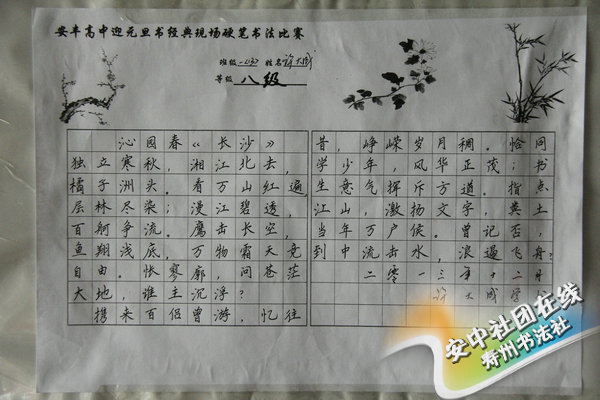 安丰高中迎元旦书经典现场硬笔书法比赛
班级 一(13) 姓名 许大成
等级 八级
沁园春《长沙》
独立寒秋,湘江北去,
橘子洲头。看万山红遍,
层林尽染;漫江碧透,
百舸争流。鹰击长空,
鱼翔浅底,万物霜天竞
自由。怅寥廓,问苍茫
大地,谁主沉浮?
携来百侣曾游,忆往
昔,峥嵘岁月稠。恰同
学少年,风华正茂;书
生意气挥斥方遒。指点
江山,激扬文字,粪土
当年万户侯。曾记否,
到中流击水,浪遏飞舟?
二零一三年十二月
许大成
安中社团在线
寿州书法社